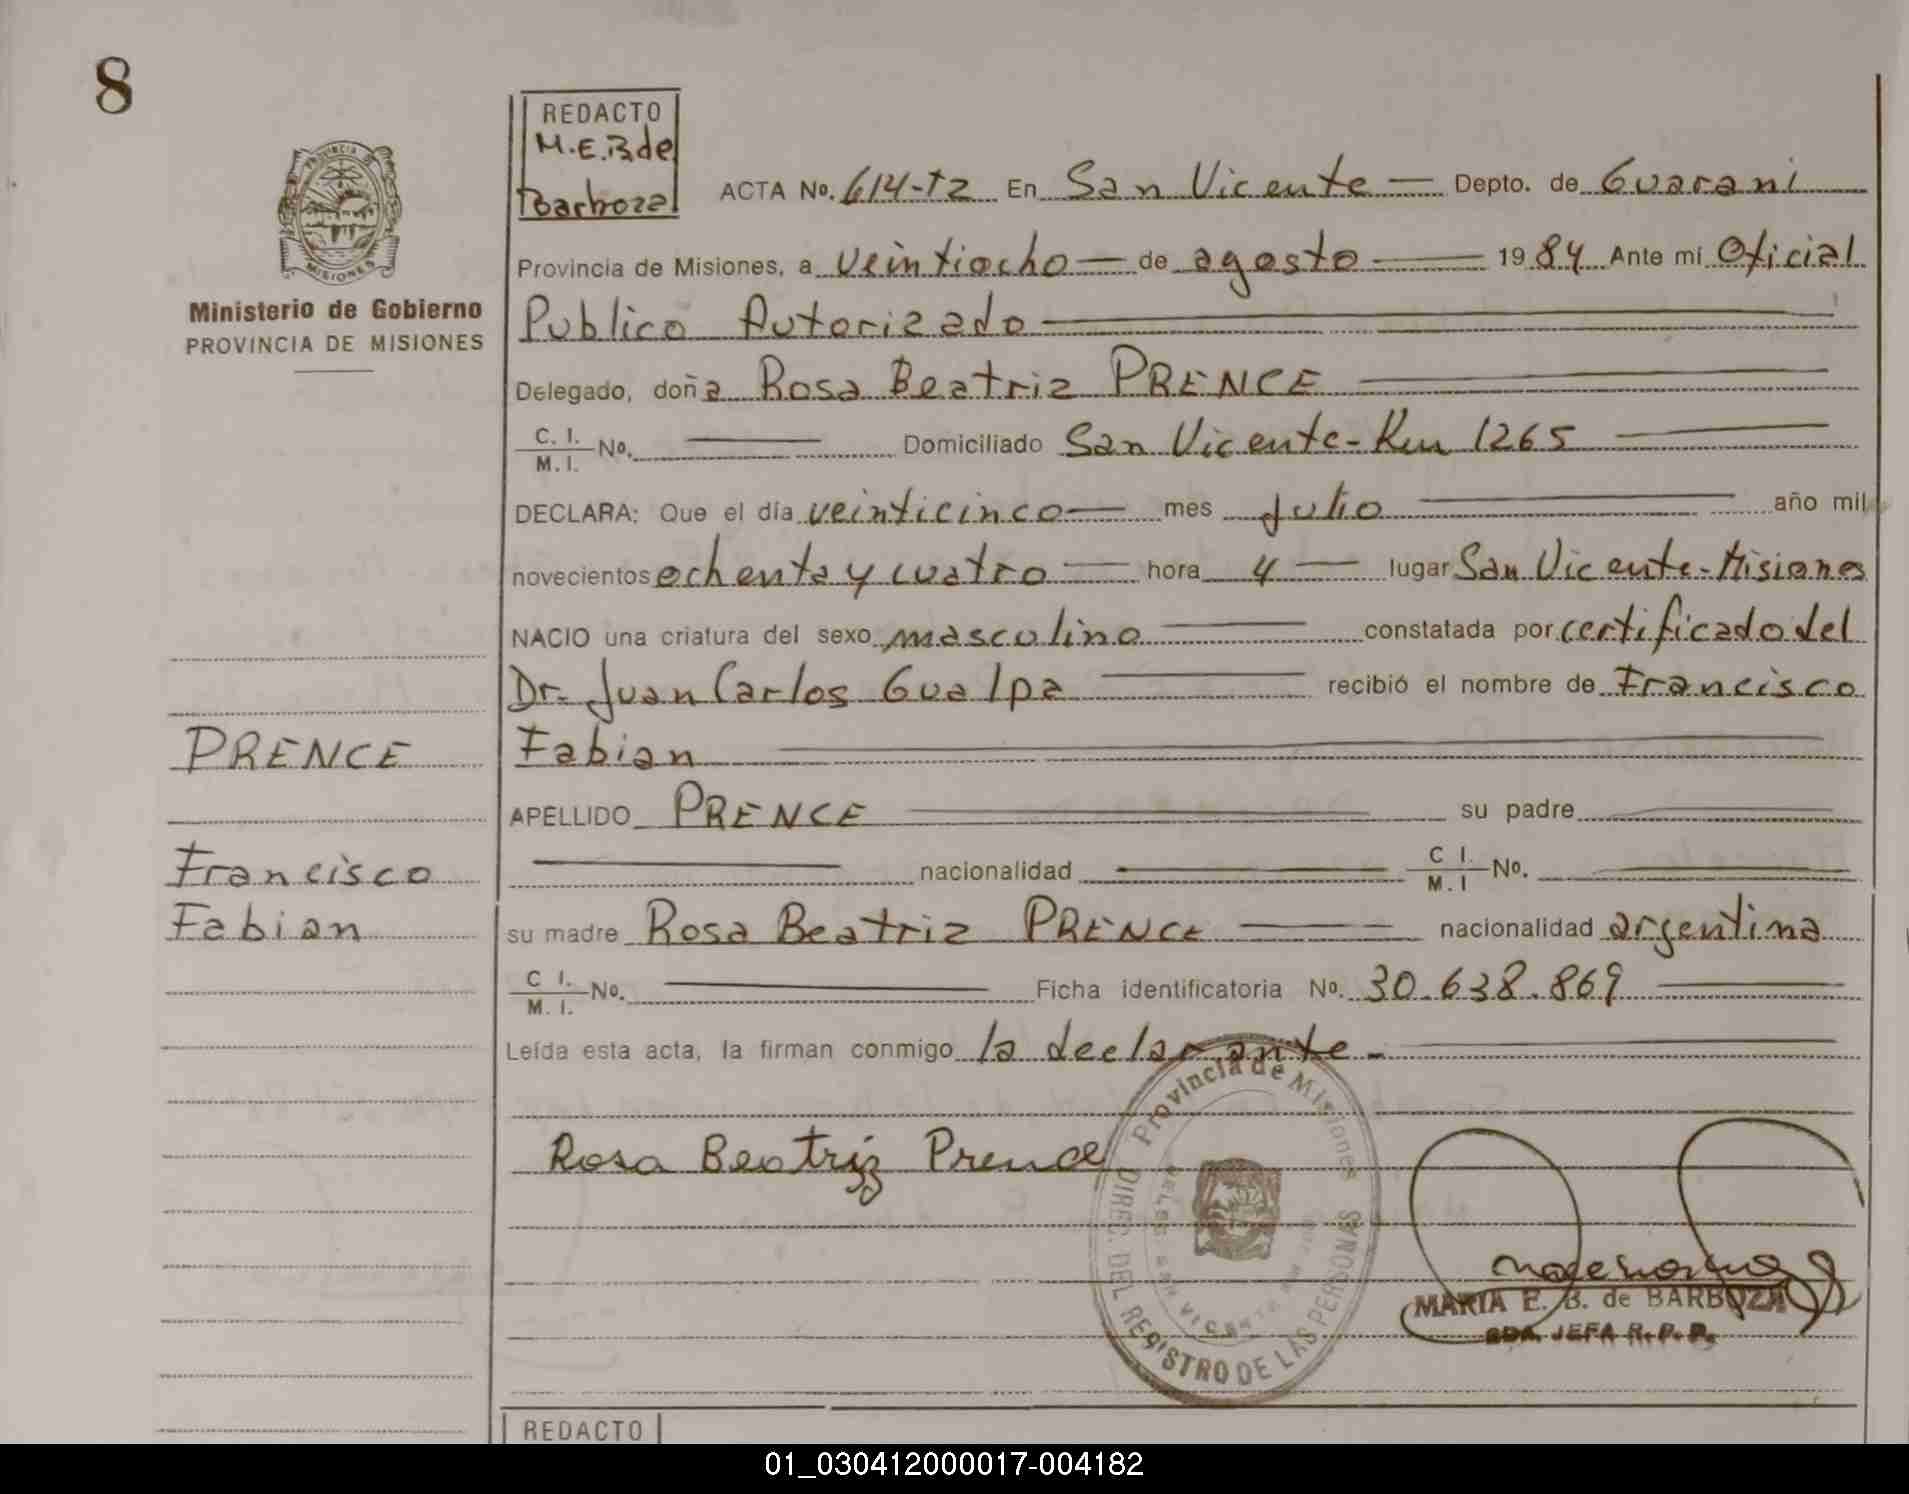 8
REDACTO
M.E.B de
Barboza
ACTA No. 614-t2 En San Vicente Depto. de Guarani
PROVINCIA DE
MISIONES
Ministerio de Gobierno
PROVINCIA DE MISIONES
Provincia de Misiones, a veintiocho de agosto 1984 Ante mí Oficial
Publico Autorizado
Delegado, doña Rosa Beatriz PRENCE
C. I.
M. I. No. Domiciliado San Vicente-Km 1265
DECLARA: Que el día veinticinco mes julio año mil
novecientos ochenta y cuatro hora 4 lugar San Vicente-Misiones
NACIO una criatura del sexo masculino constatada por certificado del
Dr. Juan Carlos Gualpa recibió el nombre de Francisco
Fabian
APELLIDO PRENCE su padre
nacionalidad C I.
M. I No.
su madre Rosa Beatriz PRENCE nacionalidad argentina
C I.
M. I. No. Ficha identificatoria No. 30.638.869
Leída esta acta, la firman conmigo la declarante.
PRENCE
Francisco
Fabian
Rosa Beatriz Prence
Provincia de Misiones
DIREC. DEL REGISTRO DE LAS PERSONAS
SAN VICENTE
MARIA E. B. de BARBOZA
JEFA R. P. P.
REDACTO
01_030412000017-004182